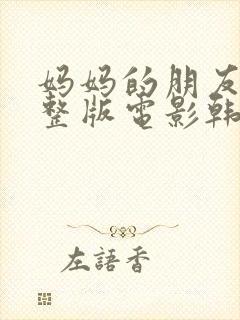 妈妈的朋友
整版電影韩
左語香